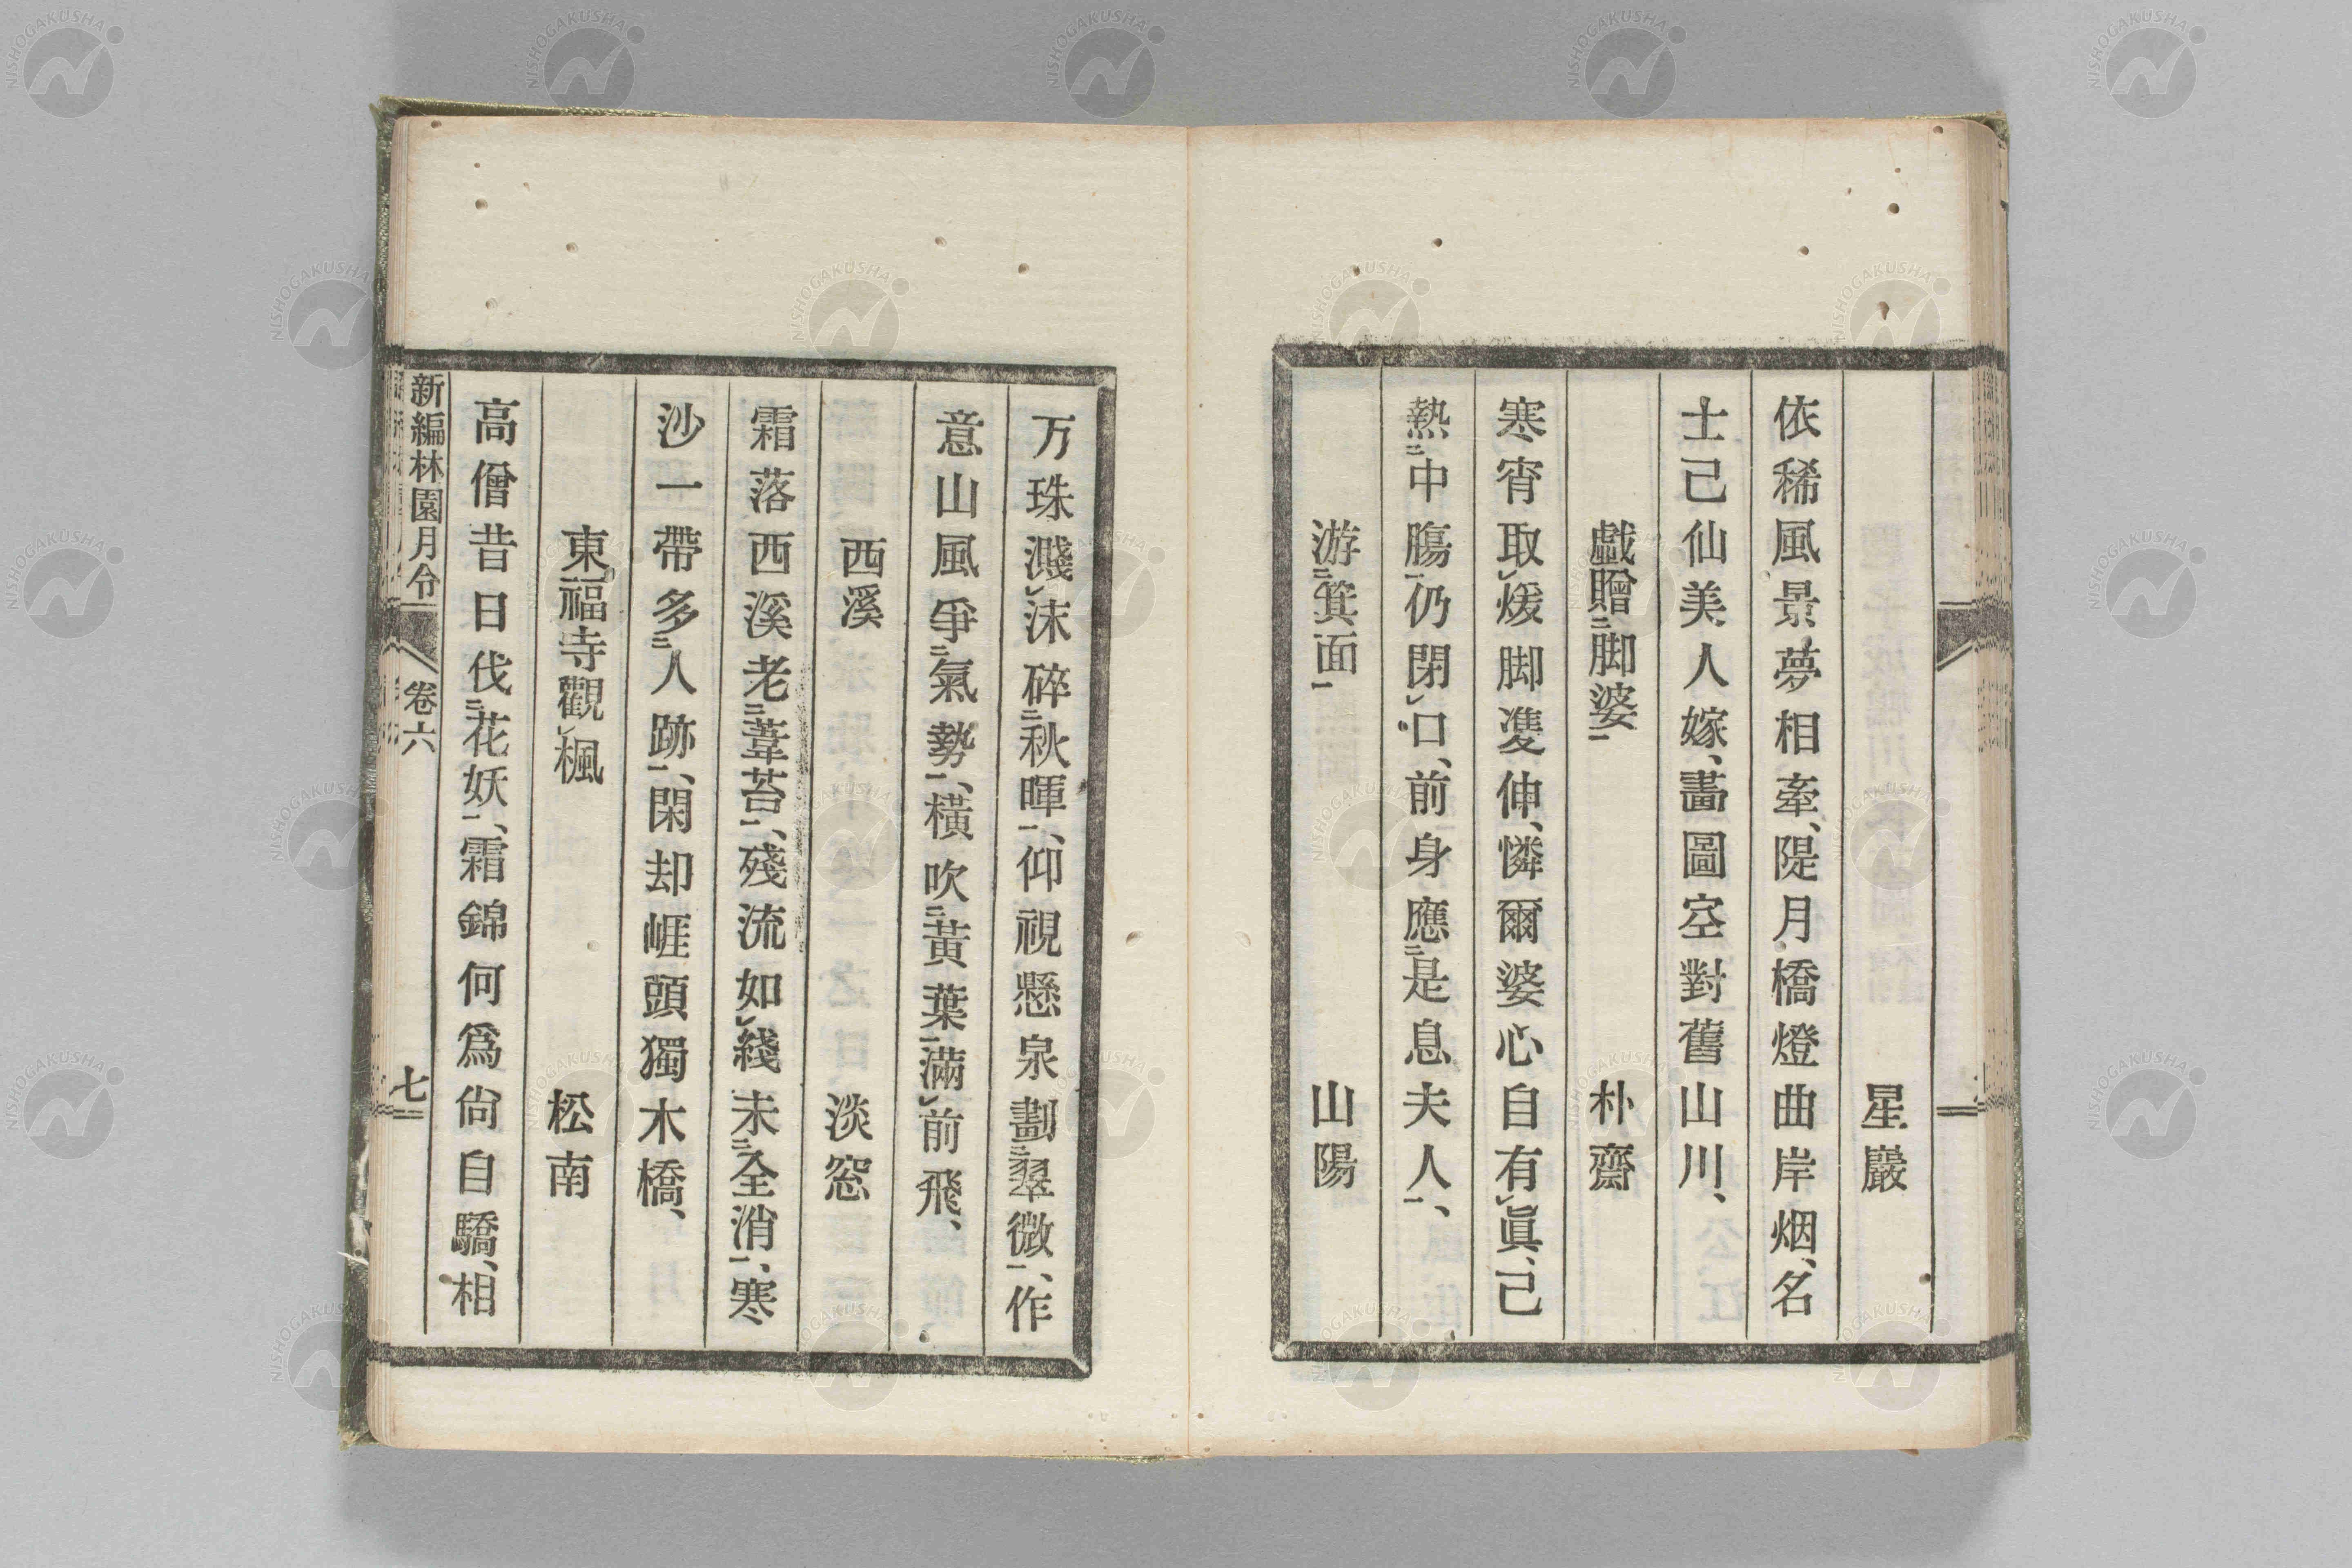 星巖
依稀風景夢相牽、隄月橋燈曲岸烟、名
士己仙美人嫁、畵圖空對舊山川、
戯贈㆓脚婆㆒
朴齋
寒宵取㆑煖脚㕠伸、憐爾婆心自有㆑眞、己
熱㆓中膓㆒仍閉㆑口、前身應㆓是息夫人㆒、
游㆓箕面㆒
山陽
万珠濺㆑沫碎㆓秋暉㆒、仰視懸泉劃㆓翠微㆒、作
意山風爭㆓氣勢㆒、橫吹㆓黃葉㆒滿㆑前飛、
西溪
淡窓
霜落西溪老㆓葦苔㆒、殘流如㆑綫未㆓全消㆒、寒
沙一帶多㆓人跡㆒、閑却崕頭獨木橋、
東福寺觀㆑楓
松南
高僧昔日伐㆓花妖㆒、霜錦何爲尙自驕、相
新編林園月令
卷六
七
NISHOGAKUSHA